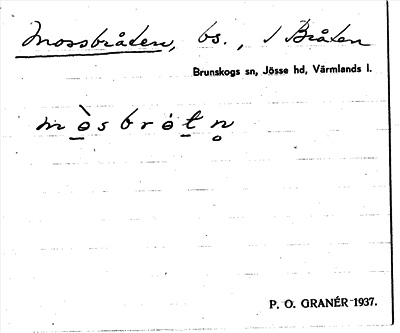 Mossbråten, bs., / Bråten
Brunskogs sn, Jösse hd, Värmlands l.
mòsbrótn̥
P. O. GRANÉR 1937.